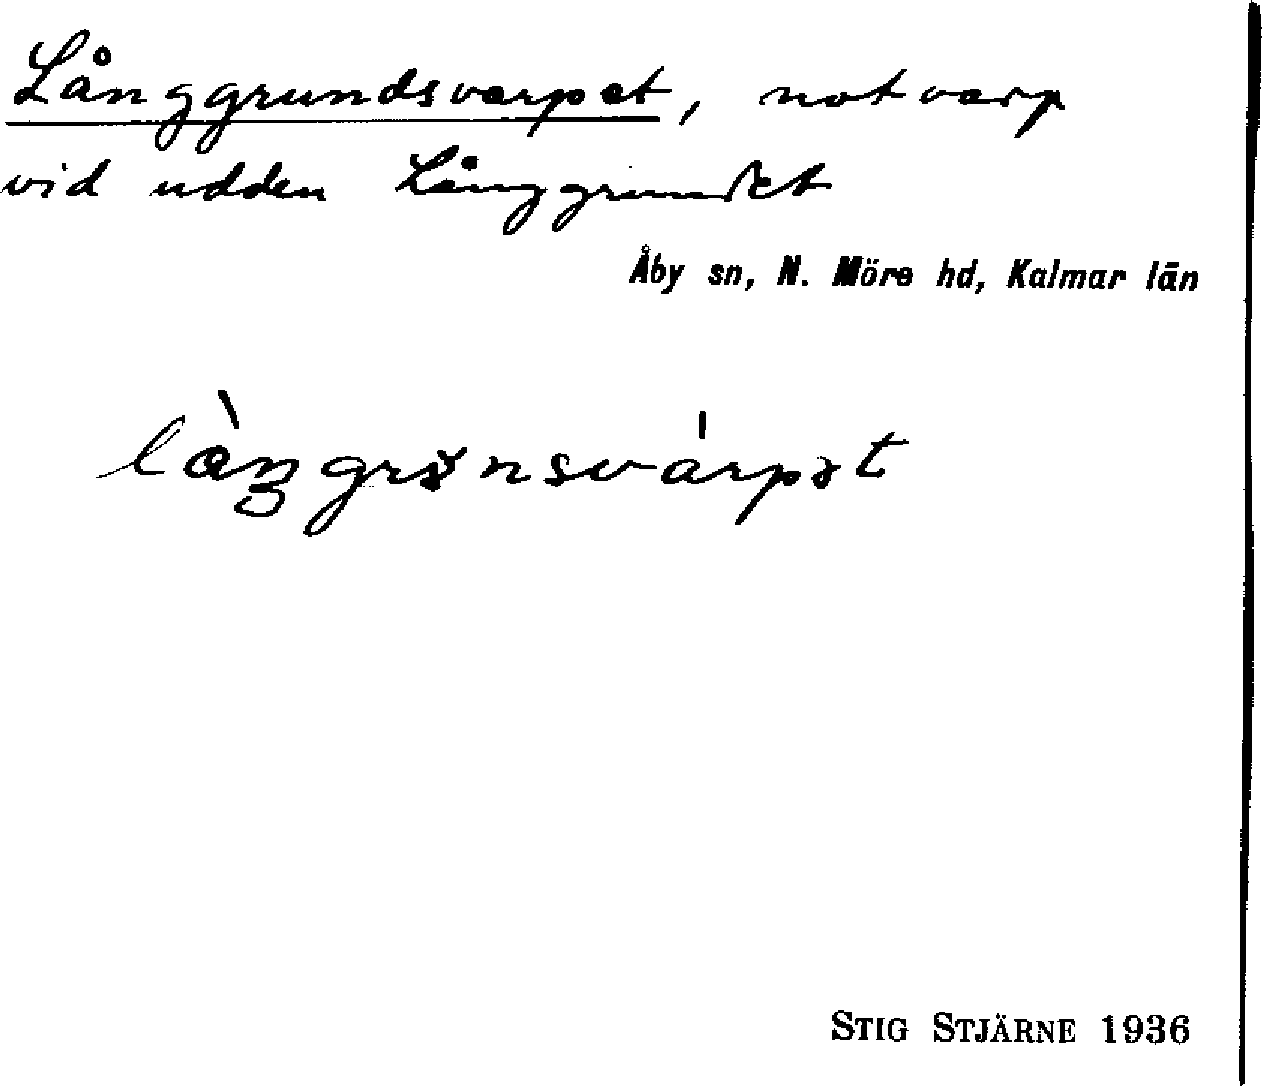 Långgrundsvarpet, notvarp
vid udden Långgrundet
Åby sn, N. Möre hd, Kalmar län
STIG STJÄRNE 1936